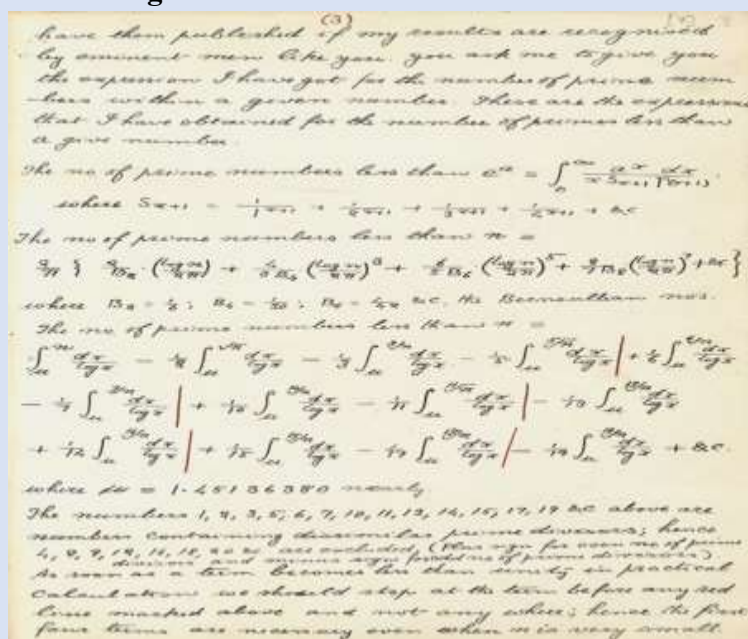 (3)
have them published if my results are recognised
by eminent men like you. you ask me to give you
the expression I have got for the number of prime num
-bers within a given number. These are the expressions
that I have obtained for the number of primes less than
a give number.
The no of prime numbers less than e^a = ∫_0^∞ a^x dx / (x S_{x+1} Γ(x+1))
where S_{x+1} = 1/1^{x+1} + 1/2^{x+1} + 1/3^{x+1} + 1/4^{x+1} + &c
The no of prime numbers less than n =
2/π { 2/B_2 (log n/2π) + 4/3B_4 (log n/2π)^3 + 6/5B_6 (log n/2π)^5 + 8/7B_8 (log n/2π)^7 + &c }
where B_2 = 1/6; B_4 = 1/30; B_6 = 1/42 &c, the Bernoullian nos.
The no of prime numbers less than n =
∫_μ^n dx/log x − 1/2 ∫_μ^{√n} dx/log x − 1/3 ∫_μ dx/log x − 1/5 ∫_μ dx/log x | + 1/6 ∫_μ dx/log x
− 1/7 ∫_μ dx/log x | + 1/10 ∫_μ dx/log x − 1/11 ∫_μ dx/log x | − 1/13 ∫_μ dx/log x
+ 1/14 ∫_μ dx/log x | + 1/15 ∫_μ dx/log x − 1/17 ∫_μ dx/log x | − 1/19 ∫_μ dx/log x + &c.
where μ = 1.45136380 nearly.
The numbers 1, 2, 3, 5, 6, 7, 10, 11, 13, 14, 15, 17, 19 &c above are
numbers containing dissimilar prime divisors; hence
4, 8, 9, 12, 16, 18, 20 &c are excluded. (Plus sign for even no of prime
divisors and minus sign for odd no of prime divisors)
As soon as a term becomes less than unity in practical
calculation we should stop at the term before any red
line marked above and not any where; hence the first
four terms are necessary even when n is very small.